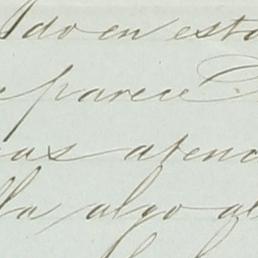 do en esta
parece
as atenc
lla algo al